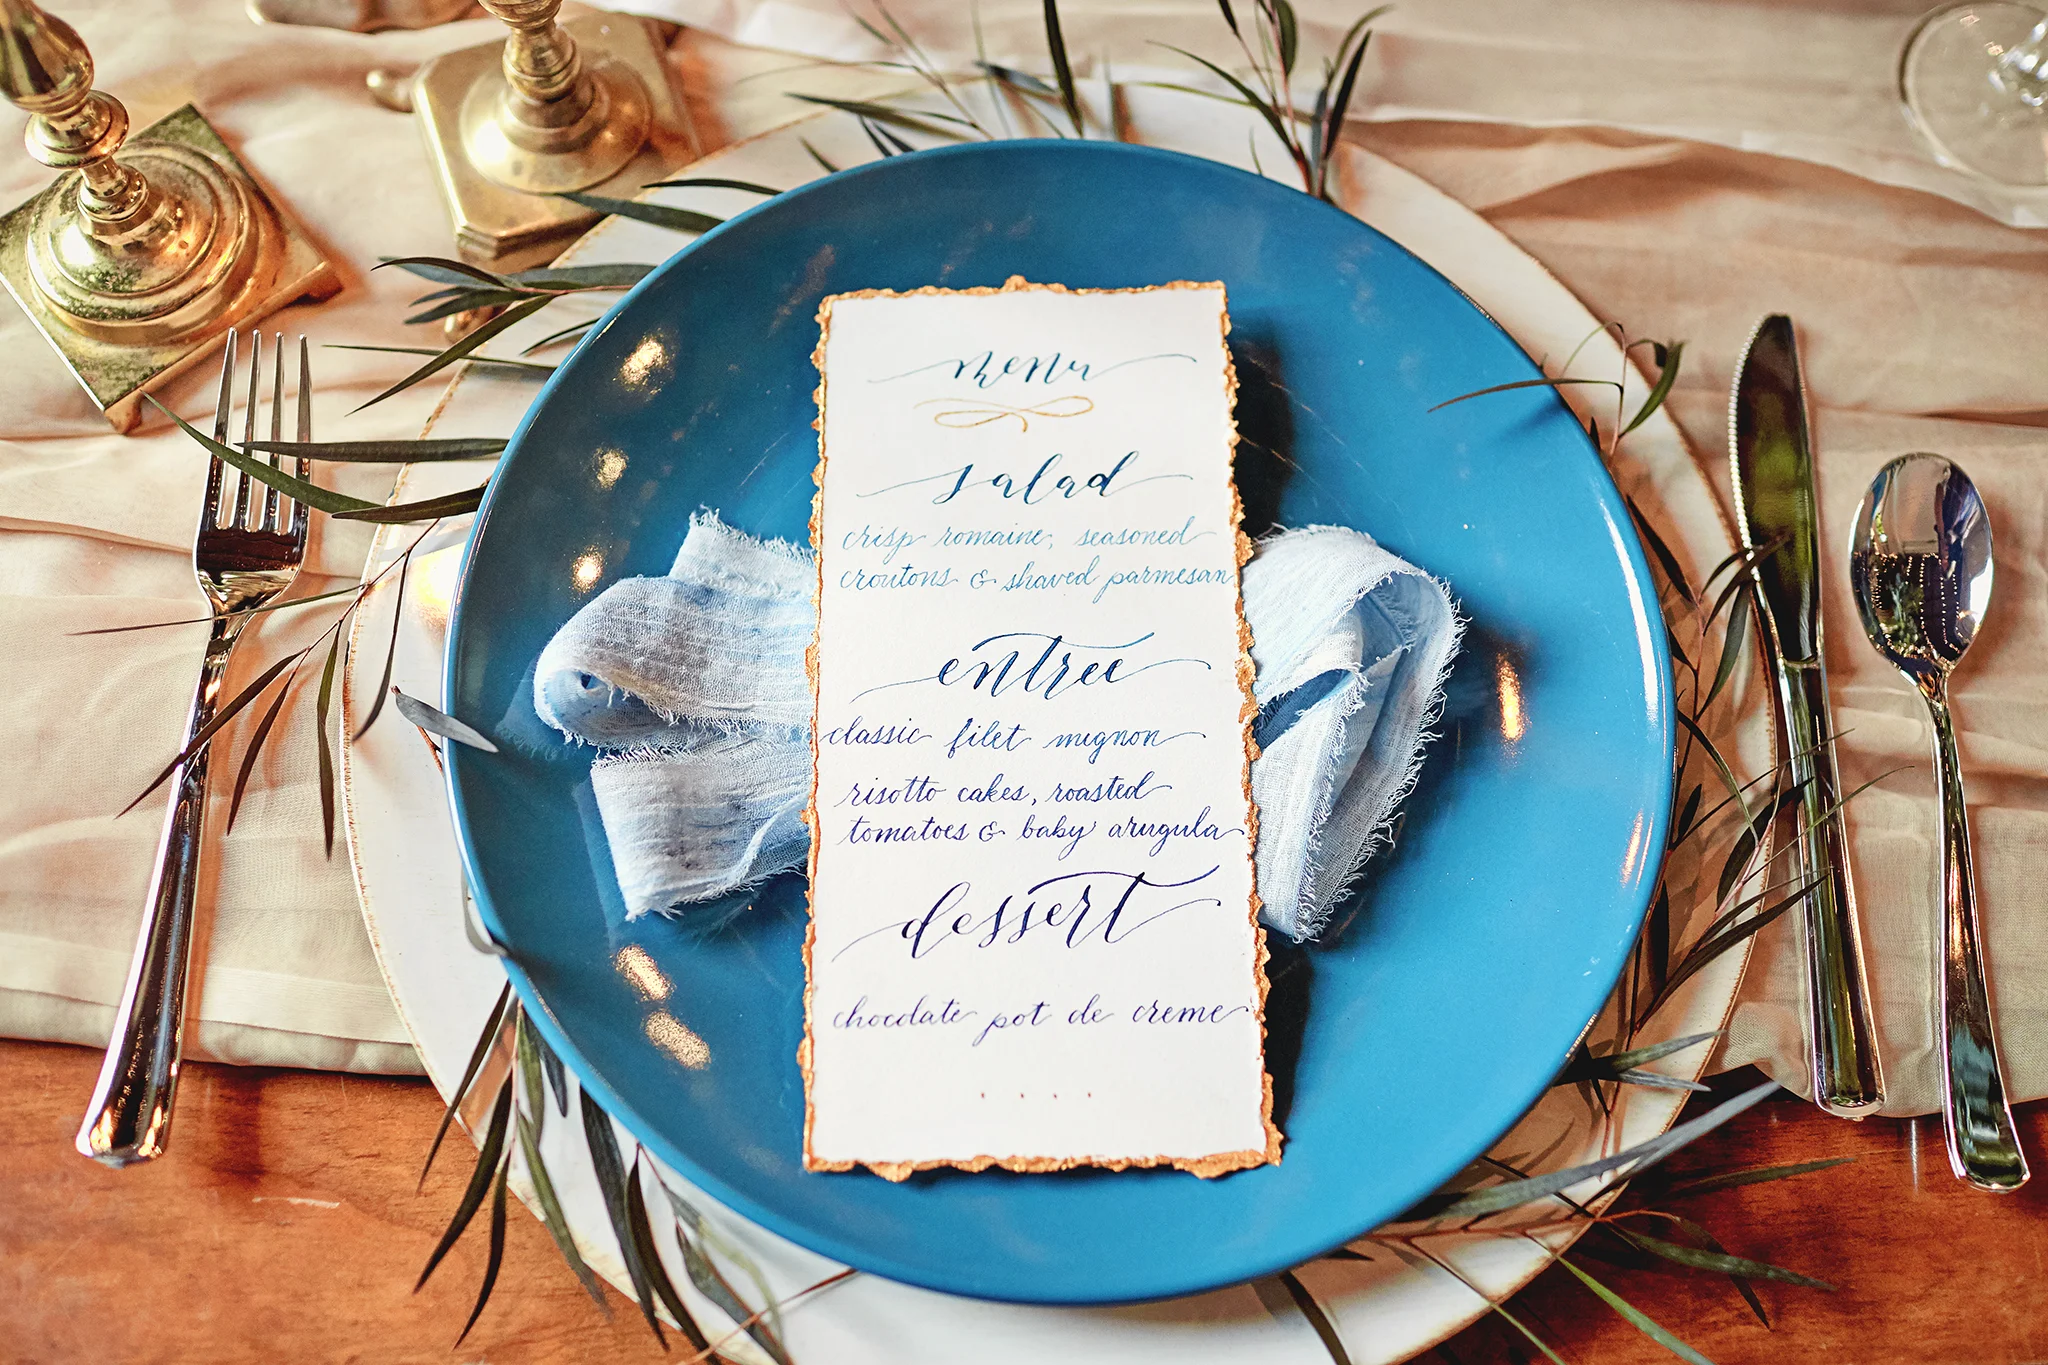 menu
salad
crisp romaine, seasoned
croutons & shaved parmesan
entree
classic filet mignon
risotto cakes, roasted
tomatoes & baby arugula
dessert
chocolate pot de creme